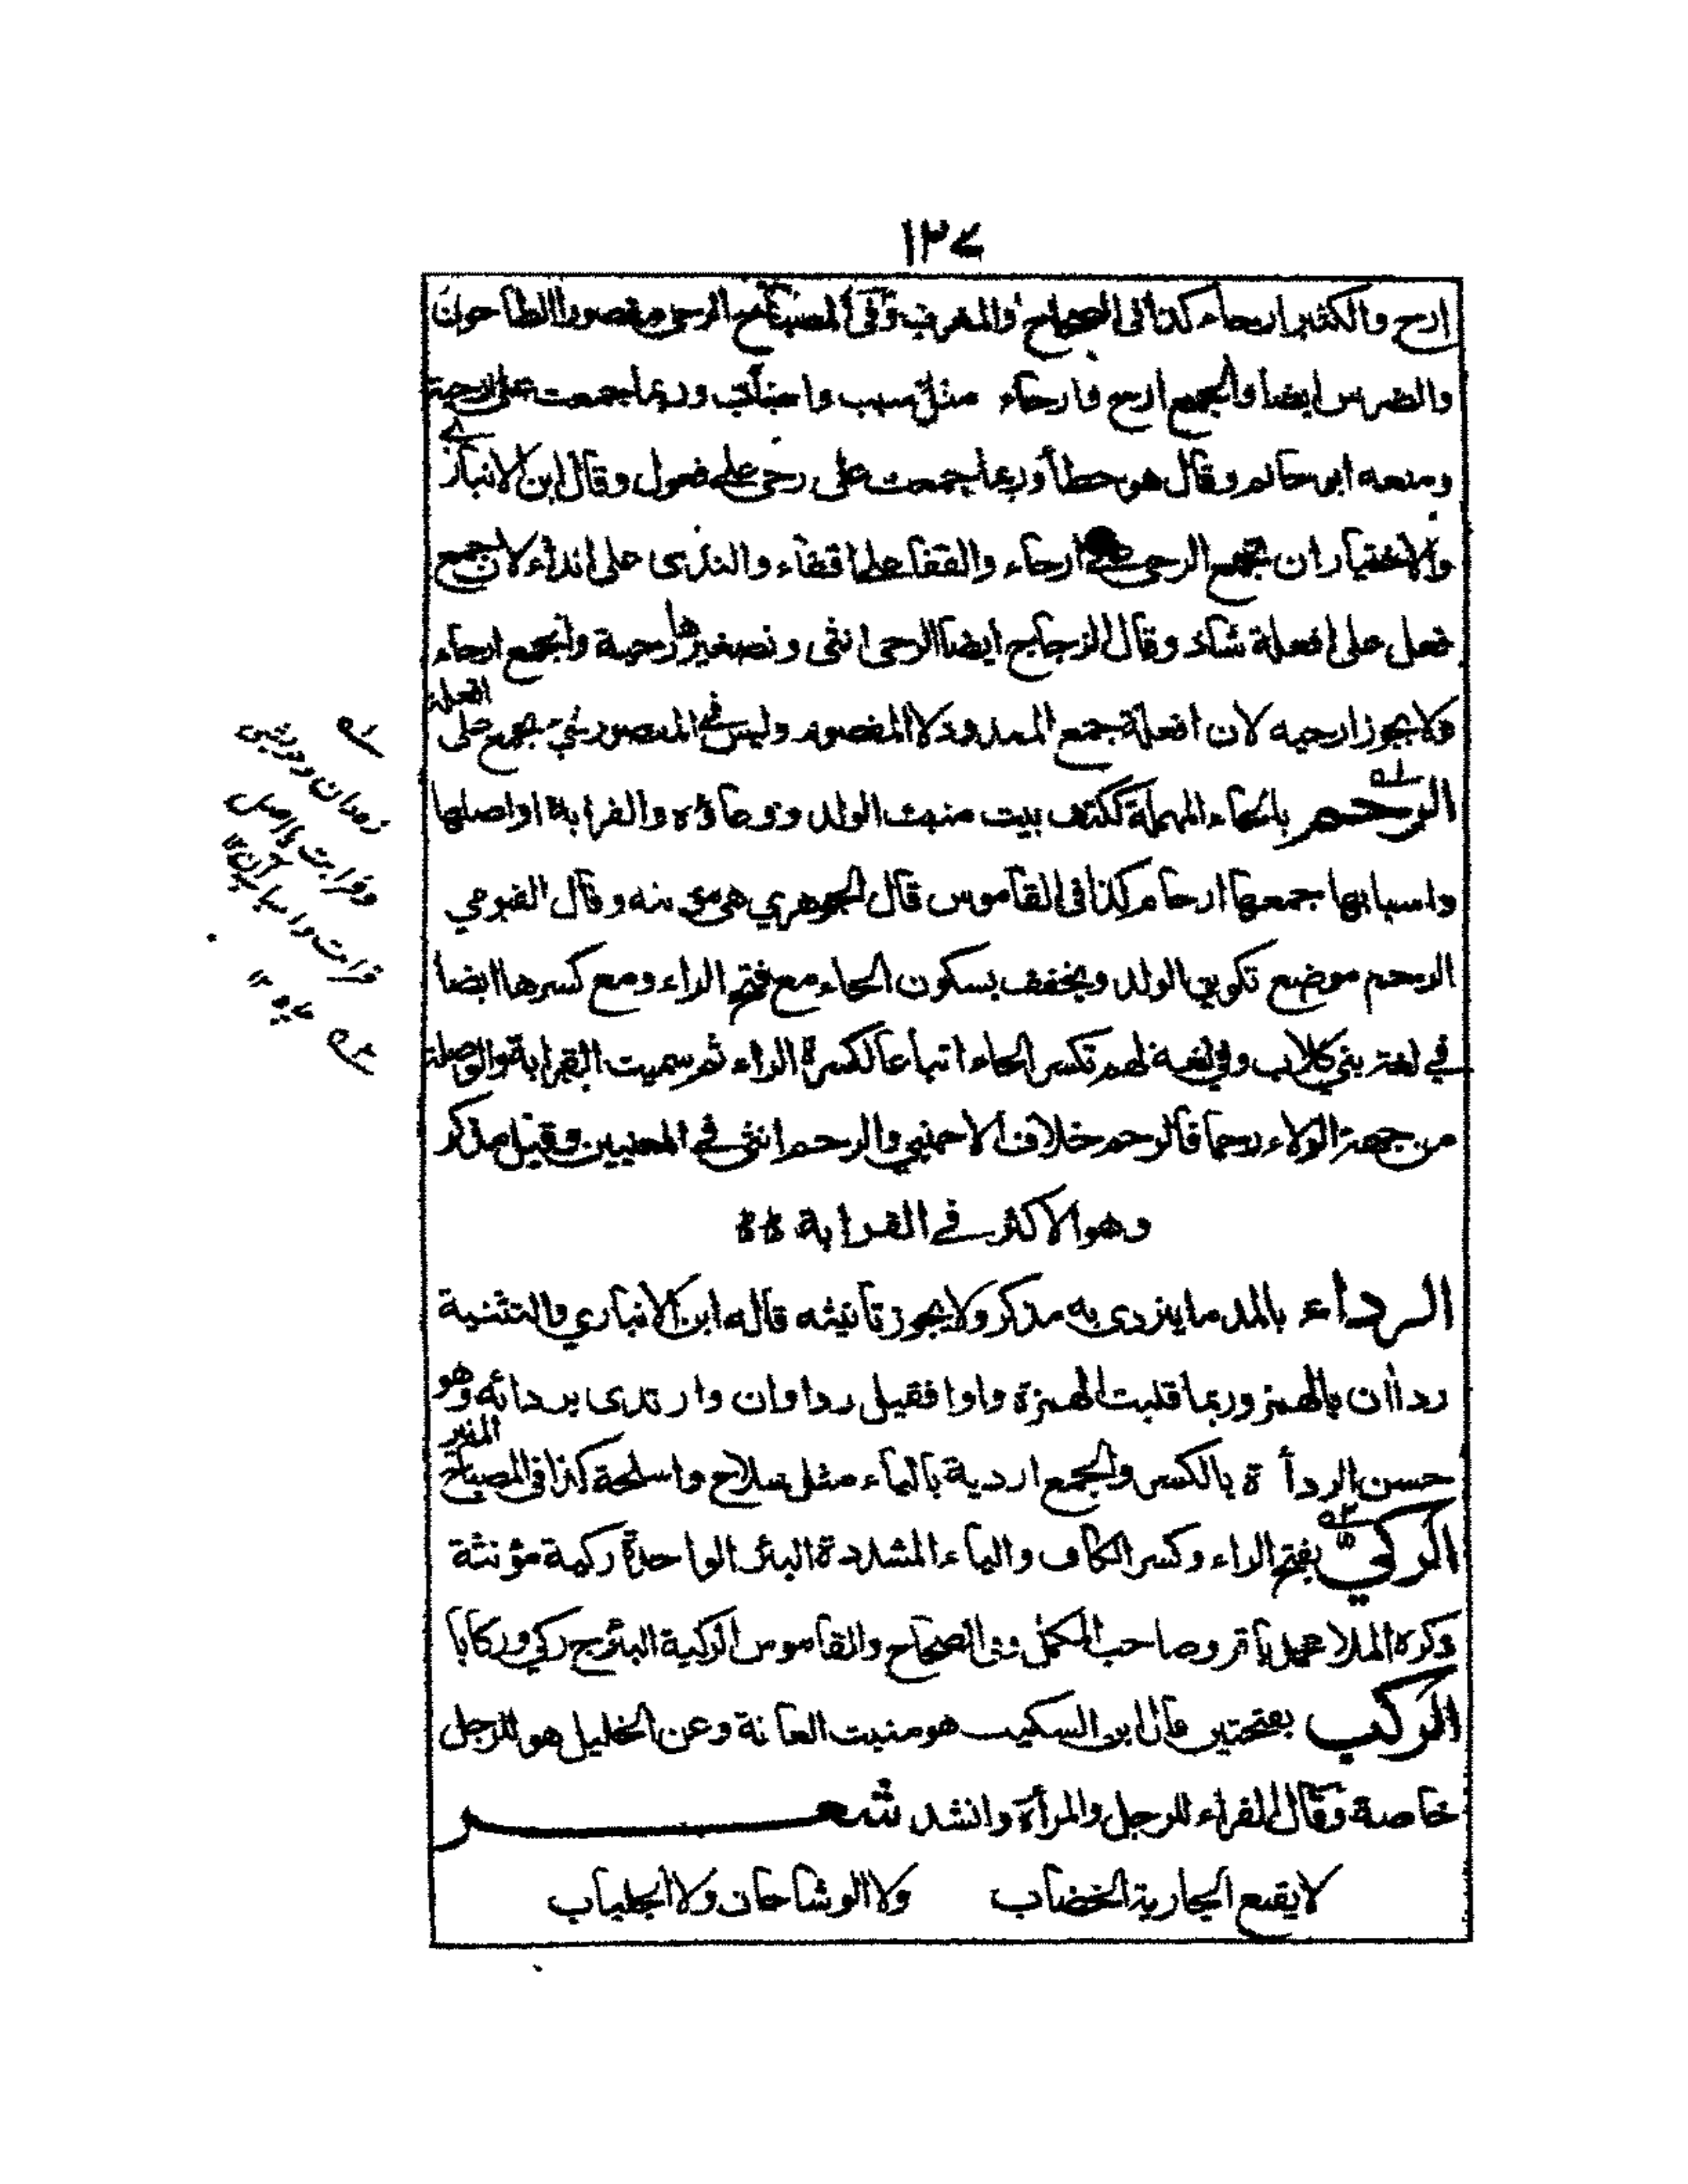 ١٣٧
ارح والكثير ارحاء كذا فى الصحاح والمغرب وفى المصباح الرحى مقصورا الطاحون
والضرس ايضا والجمع ارح وارحاء مثل سبب واسباب وربما جمعت على ارحية
ومنعه ابو حاتم وقال هو خطأ وربما جمعت على رحى على فعول وقال ابن الانباري
والاختيار ان تجمع الرحى على ارحاء والقفا على اقفاء والندى على انداء لان جمع
فعل على افعلة شاذ وقال الزجاج ايضا الرحى انثى وتصغيرها رحية والجمع ارحاء
ولا يجوز ارحيه لان افعلة جمع الممدود لا المقصور وليس في المقصور شيء يجمع على افعلة
الرحم بالحاء المهملة ككتف بيت منبت الولد ووعاؤه والقرابة او اصلها
واسبابها جمعها ارحام كذا فى القاموس قال الجوهري هى مؤنثه وقال الفيومي
الرحم موضع تكوين الولد ويخفف بسكون الحاء مع فتح الراء ومع كسرها ايضا
في لغة بني كلاب وفي لغة لهم تكسر الحاء اتباعا لكسرة الراء ثم سميت القرابة والوصلة
من جهة الولاء رحما فالرحم خلاف الاجنبي والرحم انثى في المعنيين وقيل مذكر
وهو الاكثر في القرابة
الرداء بالمد ما يرتدى به مذكر ولا يجوز تأنيثه قاله ابن الانباري والتثنية
رداأن بالهمز وربما قلبت الهمزة واوا فقيل رداوان وارتدى بردائه وهو
حسن الردأة بالكسر والجمع اردية بالياء مثل سلاح واسلحة كذا فى المصباح المنير
الركي بفتح الراء وكسر الكاف والياء المشددة البئر الواحدة ركية مؤنثة
ذكره الملا محمد باقر وصاحب المكمل وفى الصحاح والقاموس الركية البئر ج ركي وركايا
الركب بفتحتين قال ابن السكيت هو منبت العانة وعن الخليل هو للرجل
خاصة وقال الفراء للرجل والمرأة وانشد شعر
لا يقنع الجارية الخضاب ولا الوشاحان ولا الجلباب
زهدان
وقرابت يا اصل
قرابت واسباب آن